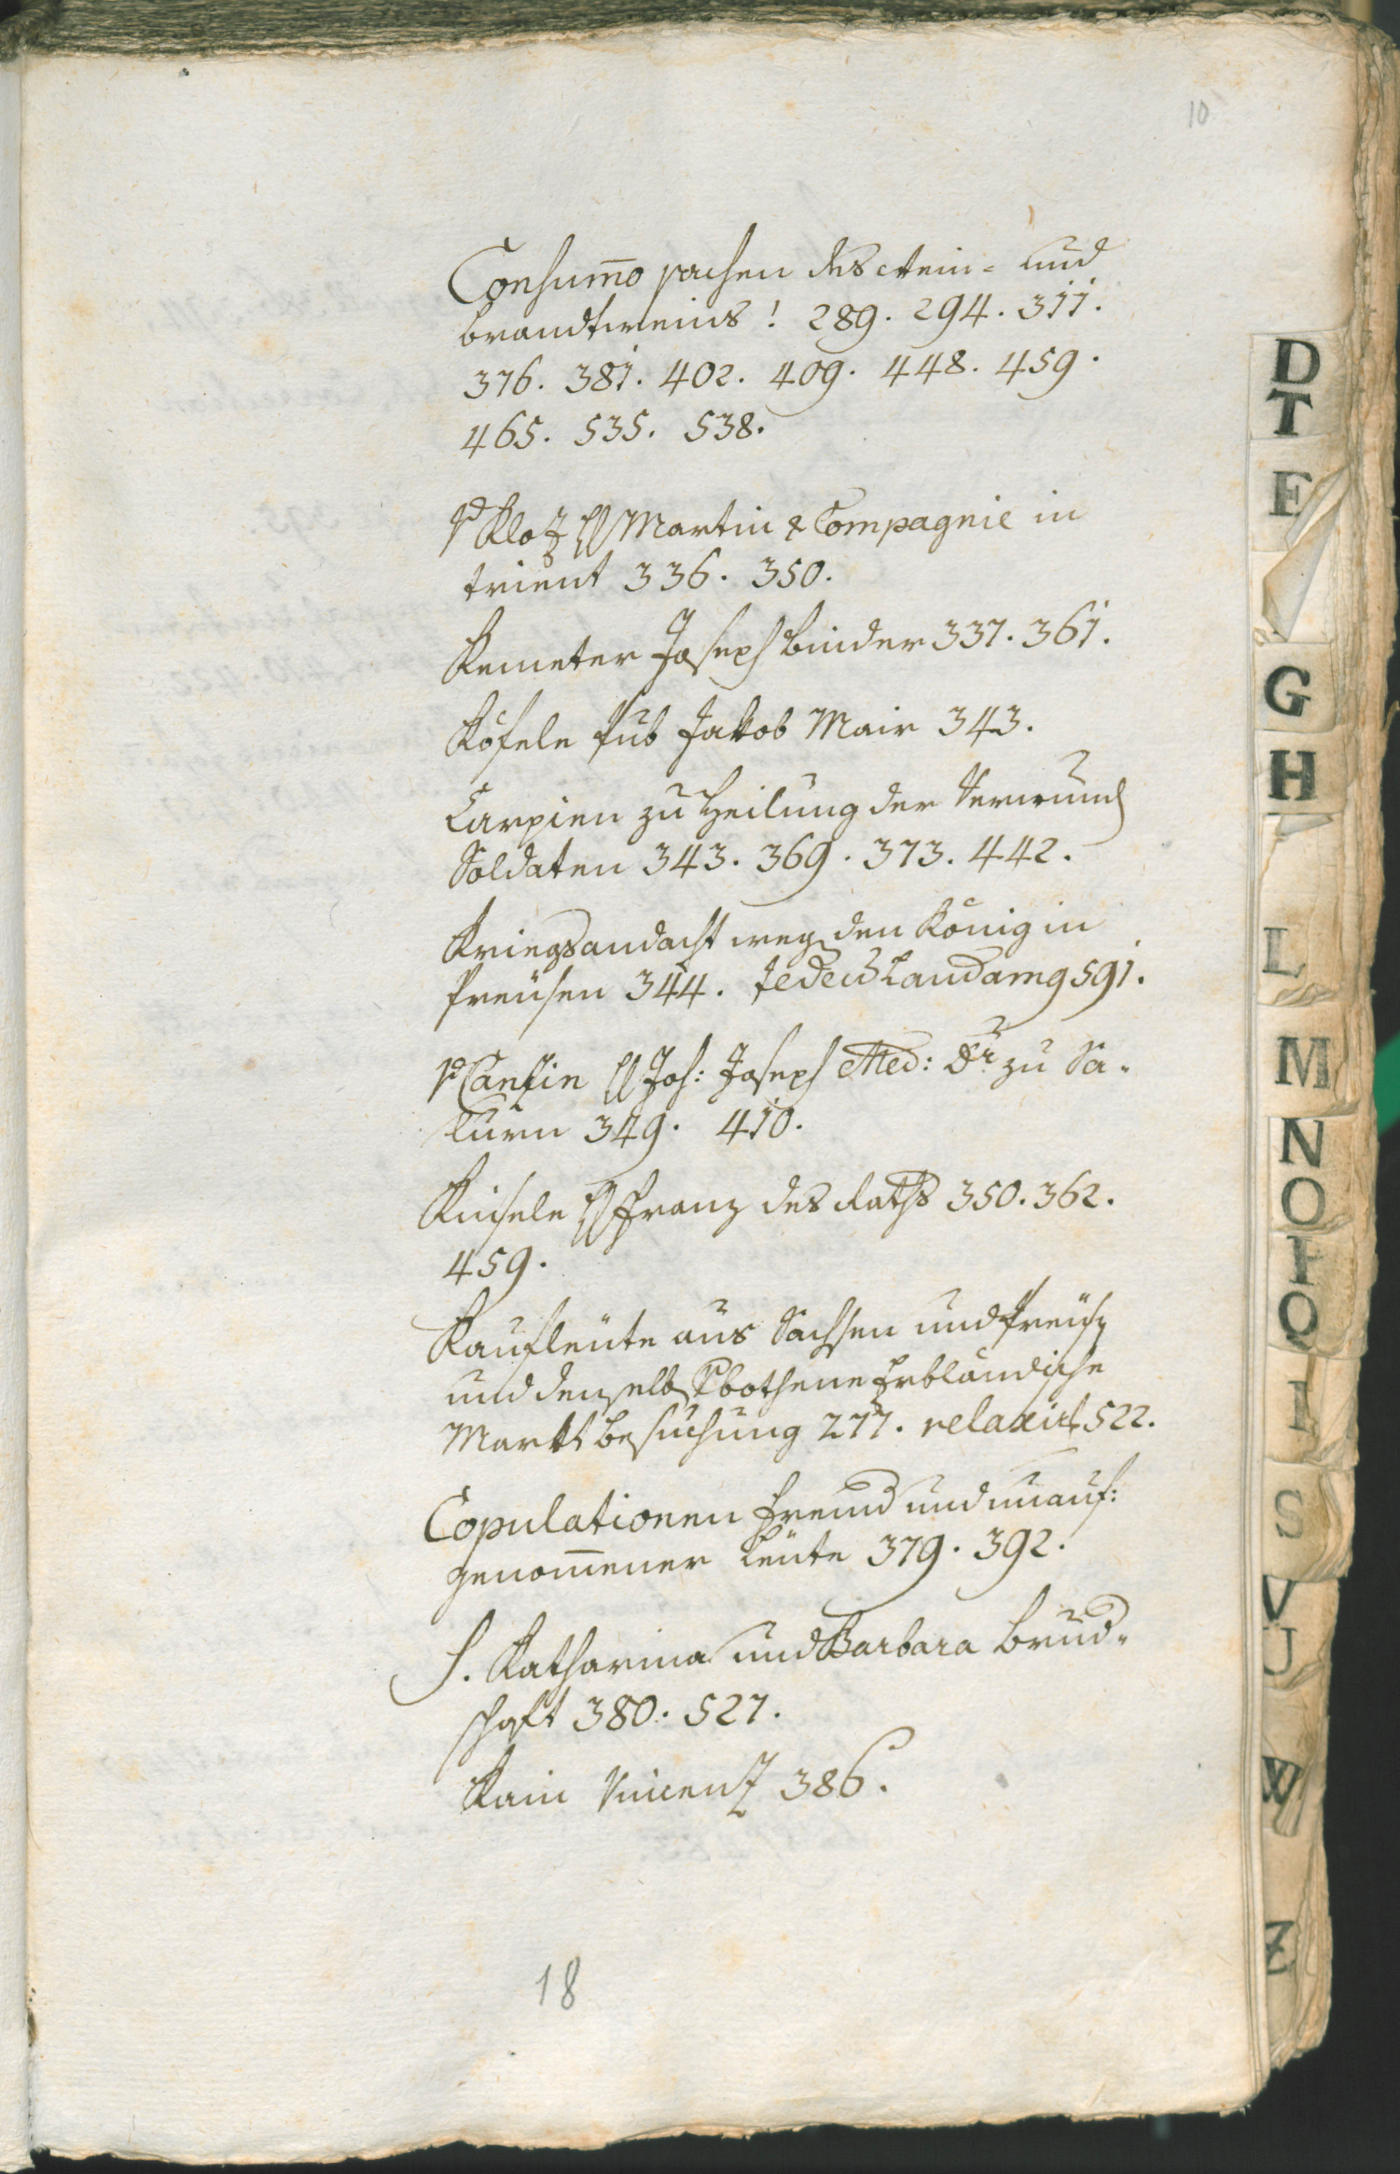 10
Consum̄o sachen des Wein- und
brandtweins! 289. 294. 311.
376. 381. 402. 409. 448. 459.
465. 535. 538.
Kloz H Martin & Compagnie in
trient 336. 350.
Kemeter Joseph binder 337. 361.
Köfele sub Jakob Mair 343.
Carpien zu Heilung der Verwund
Soldaten 343. 369. 373. 442.
Kriegsandacht weg den König in
Preüsen 344. Te deum Laudamg 591.
Canzin H Joh: Joseph Med: Dr. zu Sa-
lurn 349. 410.
Kinsele H Franz des Raths 350. 362.
459.
Kaufleüte aus Sachsen und Preüß
und denselb Erbländische
Markts besuchung 277. relaxirt 522.
Copulationen fremd und unauf:
genom̄ener Leüte 379. 392.
S. Katharina und Barbara brud-
schaft 380. 527.
Kain Vincenz 386.
18
D
T
F
G
H
L
M
N
O
P
Q
S
V
U
W
Z